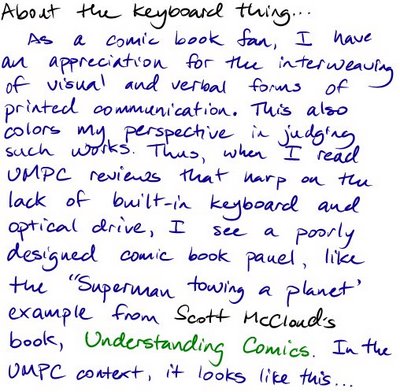 About the keyboard thing...
As a comic book fan, I have
an appreciation for the interweaving
of visual and verbal forms of
printed communication. This also
colors my perspective in judging
such works. Thus, when I read
UMPC reviews that harp on the
lack of built-in keyboard and
optical drive, I see a poorly
designed comic book panel, like
the "Superman towing a planet'
example from Scott McCloud's
book, Understanding Comics. In the
UMPC context, it looks like this...